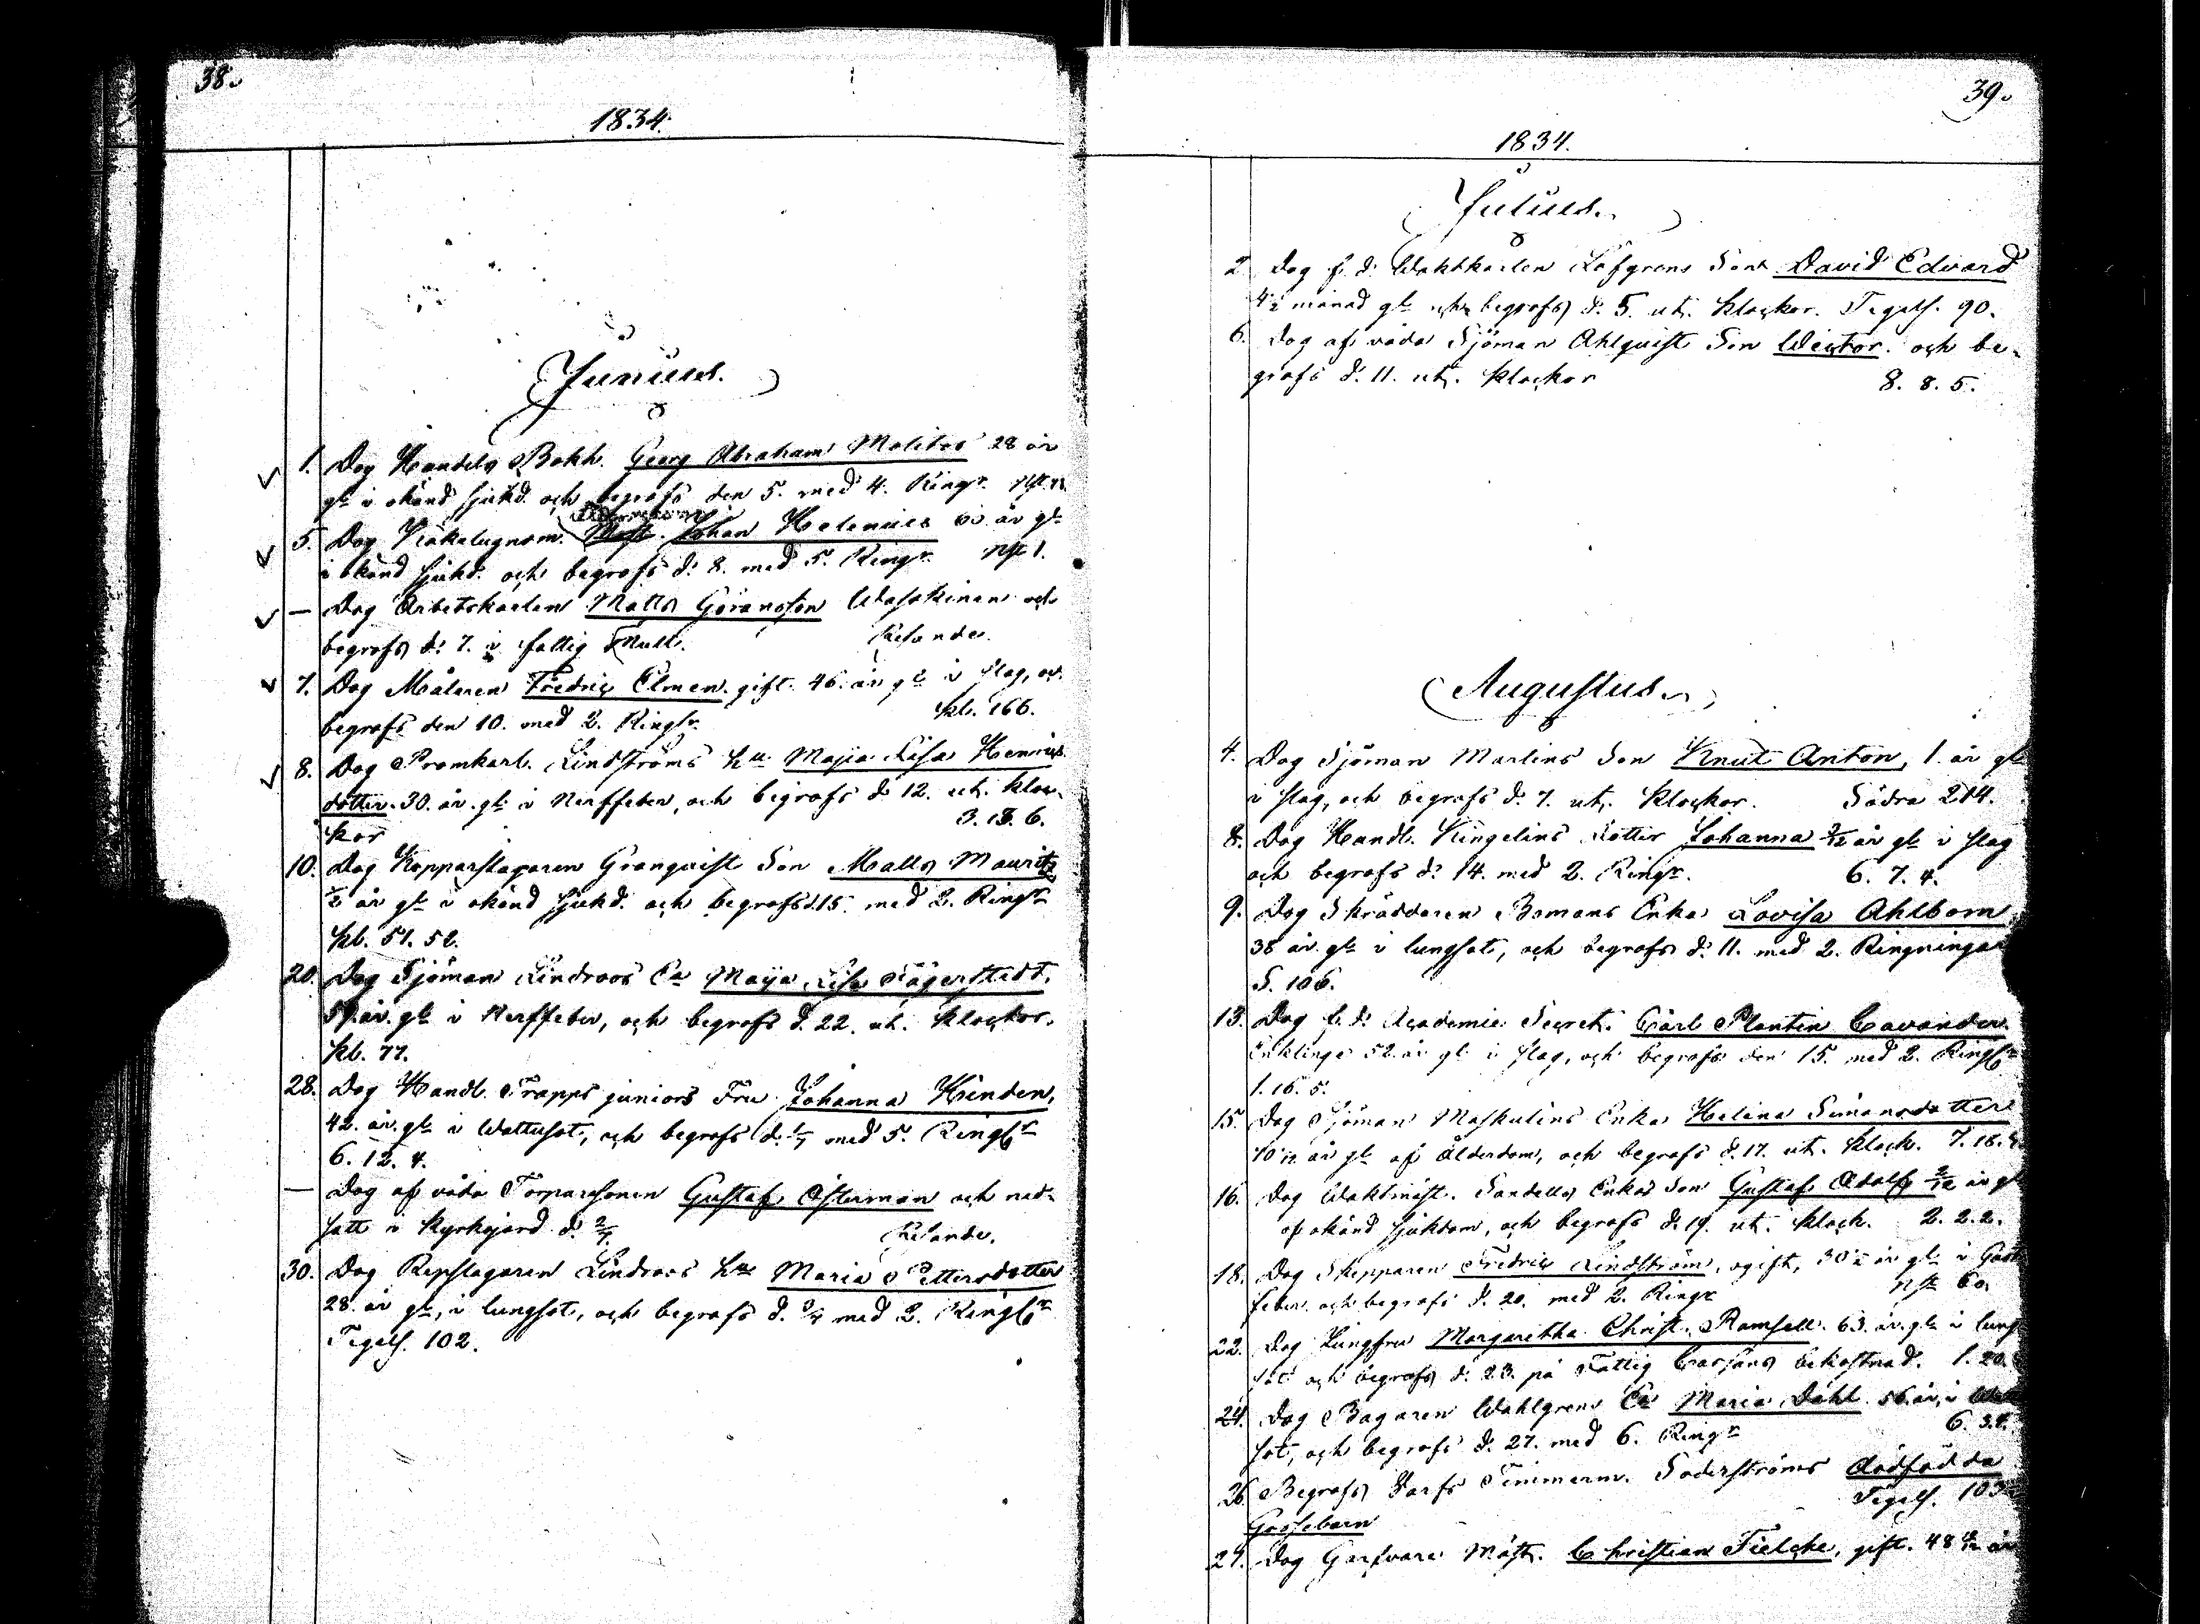 38.
1834.
Junius.
1. Dog Handels Bokh. Georg Abraham Molitor 28 år
gl. i okänd sjukd. och begrofs den 5. med 4. Ringr.
5. Dog Kakelugnsm. Mäst. Johan Helenius år gl.
i okänd sjukd. och begrofs d. 8. med 5. Ringr. 1.
— Dog Arbetskarlen Matts Göransson och
begrofs d. 7. i fattig Mull. Resande.
7. Dog Målaren Fredric Elmen gift. 46. år gl. i slag, och
begrofs den 10. med 2. Ringr. Kl. 166.
8. Dog Promkarl. Lindströms hu Maja Lisa Henrics
dotter. 30. år. gl. i Nerffeber, och begrofs d. 12. ut. Kloc-
kor 3. 13. 6.
10. Dog Kopparslagaren Granquist Son Matts Mauritz
½ år gl. i okänd sjukd. och begrofs d. 15. med 2. Ringr
Kl. 51. 52.
20. Dog Sjöman Lindroos Ea Maja Lisa Fägerstedt.
59. år. gl. i Nerffeber, och begrofs d. 22. ut. Klockor.
Kl. 77.
28. Dog Handl. Trapps juniors Fru Johanna Hinden,
42. år. gl. i Wattusot, och begrofs d. 1/7 med 5. Ringr
6. 12. 4.
— Dog af våda Torparsonen Gustaf Österman och ned-
satt i Kyrkojord d. 2/7. Resande.
30. Dog Repslagaren Lindroos hu Maria Pettersdotter
28. år gl., i lungsot, och begrofs d. 3/7 med 2. Ringr
Tegels. 102.
39.
1834.
Julius.
2. Dog f. d. Waktkarlen Löfgrens Son David Edvard
4½ månad gl. och begrofs d. 5. ut. Klockor. Tegels. 90.
6. Dog af våda Sjöman Ahlquist Son Wictor. och be-
grofs d. 11. ut. Klockor 8. 8. 5.
Augustus.
4. Dog Sjöman Marlins Son Knut Anton, 1. år gl
i slag, och begrofs d. 7. ut. Klockor. Södra 214.
8. Dog Handl. Kingelins Dotter Johanna år gl i slag
och begrofs d. 14. med 2. Ringr. 6. 7. 4.
9. Dog Skräddaren Bomans Enka Lovisa Ahlbom
38 år. gl. i lungsot, och begrofs d. 11. med 2. Ringningar
S. 106.
13. Dog f. d. Academie Secret. Carl Plantin Cavander.
Enkling 52. år gl. i slag, och begrofs den 15. med 2. Ringr
1. 16. 5.
15. Dog Sjöman Maskulins Enka Helena Simonsdotter
år gl. af Ålderdom, och begrofs d. 17. ut. Klock. 7. 18.
16. Dog Waktmäst. Sandells Enkas Son Gustaf Adolf år gl
af okänd sjukdom, och begrofs d. 19. ut. Klock. 2. 2. 2.
18. Dog Skepparen Fredric Lindström, ogift, 30 år gl. i
feber. och begrofs d. 20. med 2. Ringr 60.
22. Dog Jungfru Margaretha Christ. Ramsell. 63. år. gl. i lung
sot och begrofs d. 23. på Fattig Cassans bekostnad. 1. 20.
24. Dog Bagaren Wahlgrens Ea Maria Dahl. 56. år, i
sot, och begrofs d. 27. med 6. Ringr 6. 34.
26. Begrofs Skarfs Timmerm. Söderströms dödfödda
Gossebarn Tegels. 103.
27. Dog Garfvare Mäst. Christian Fielcke, gift. 48 år